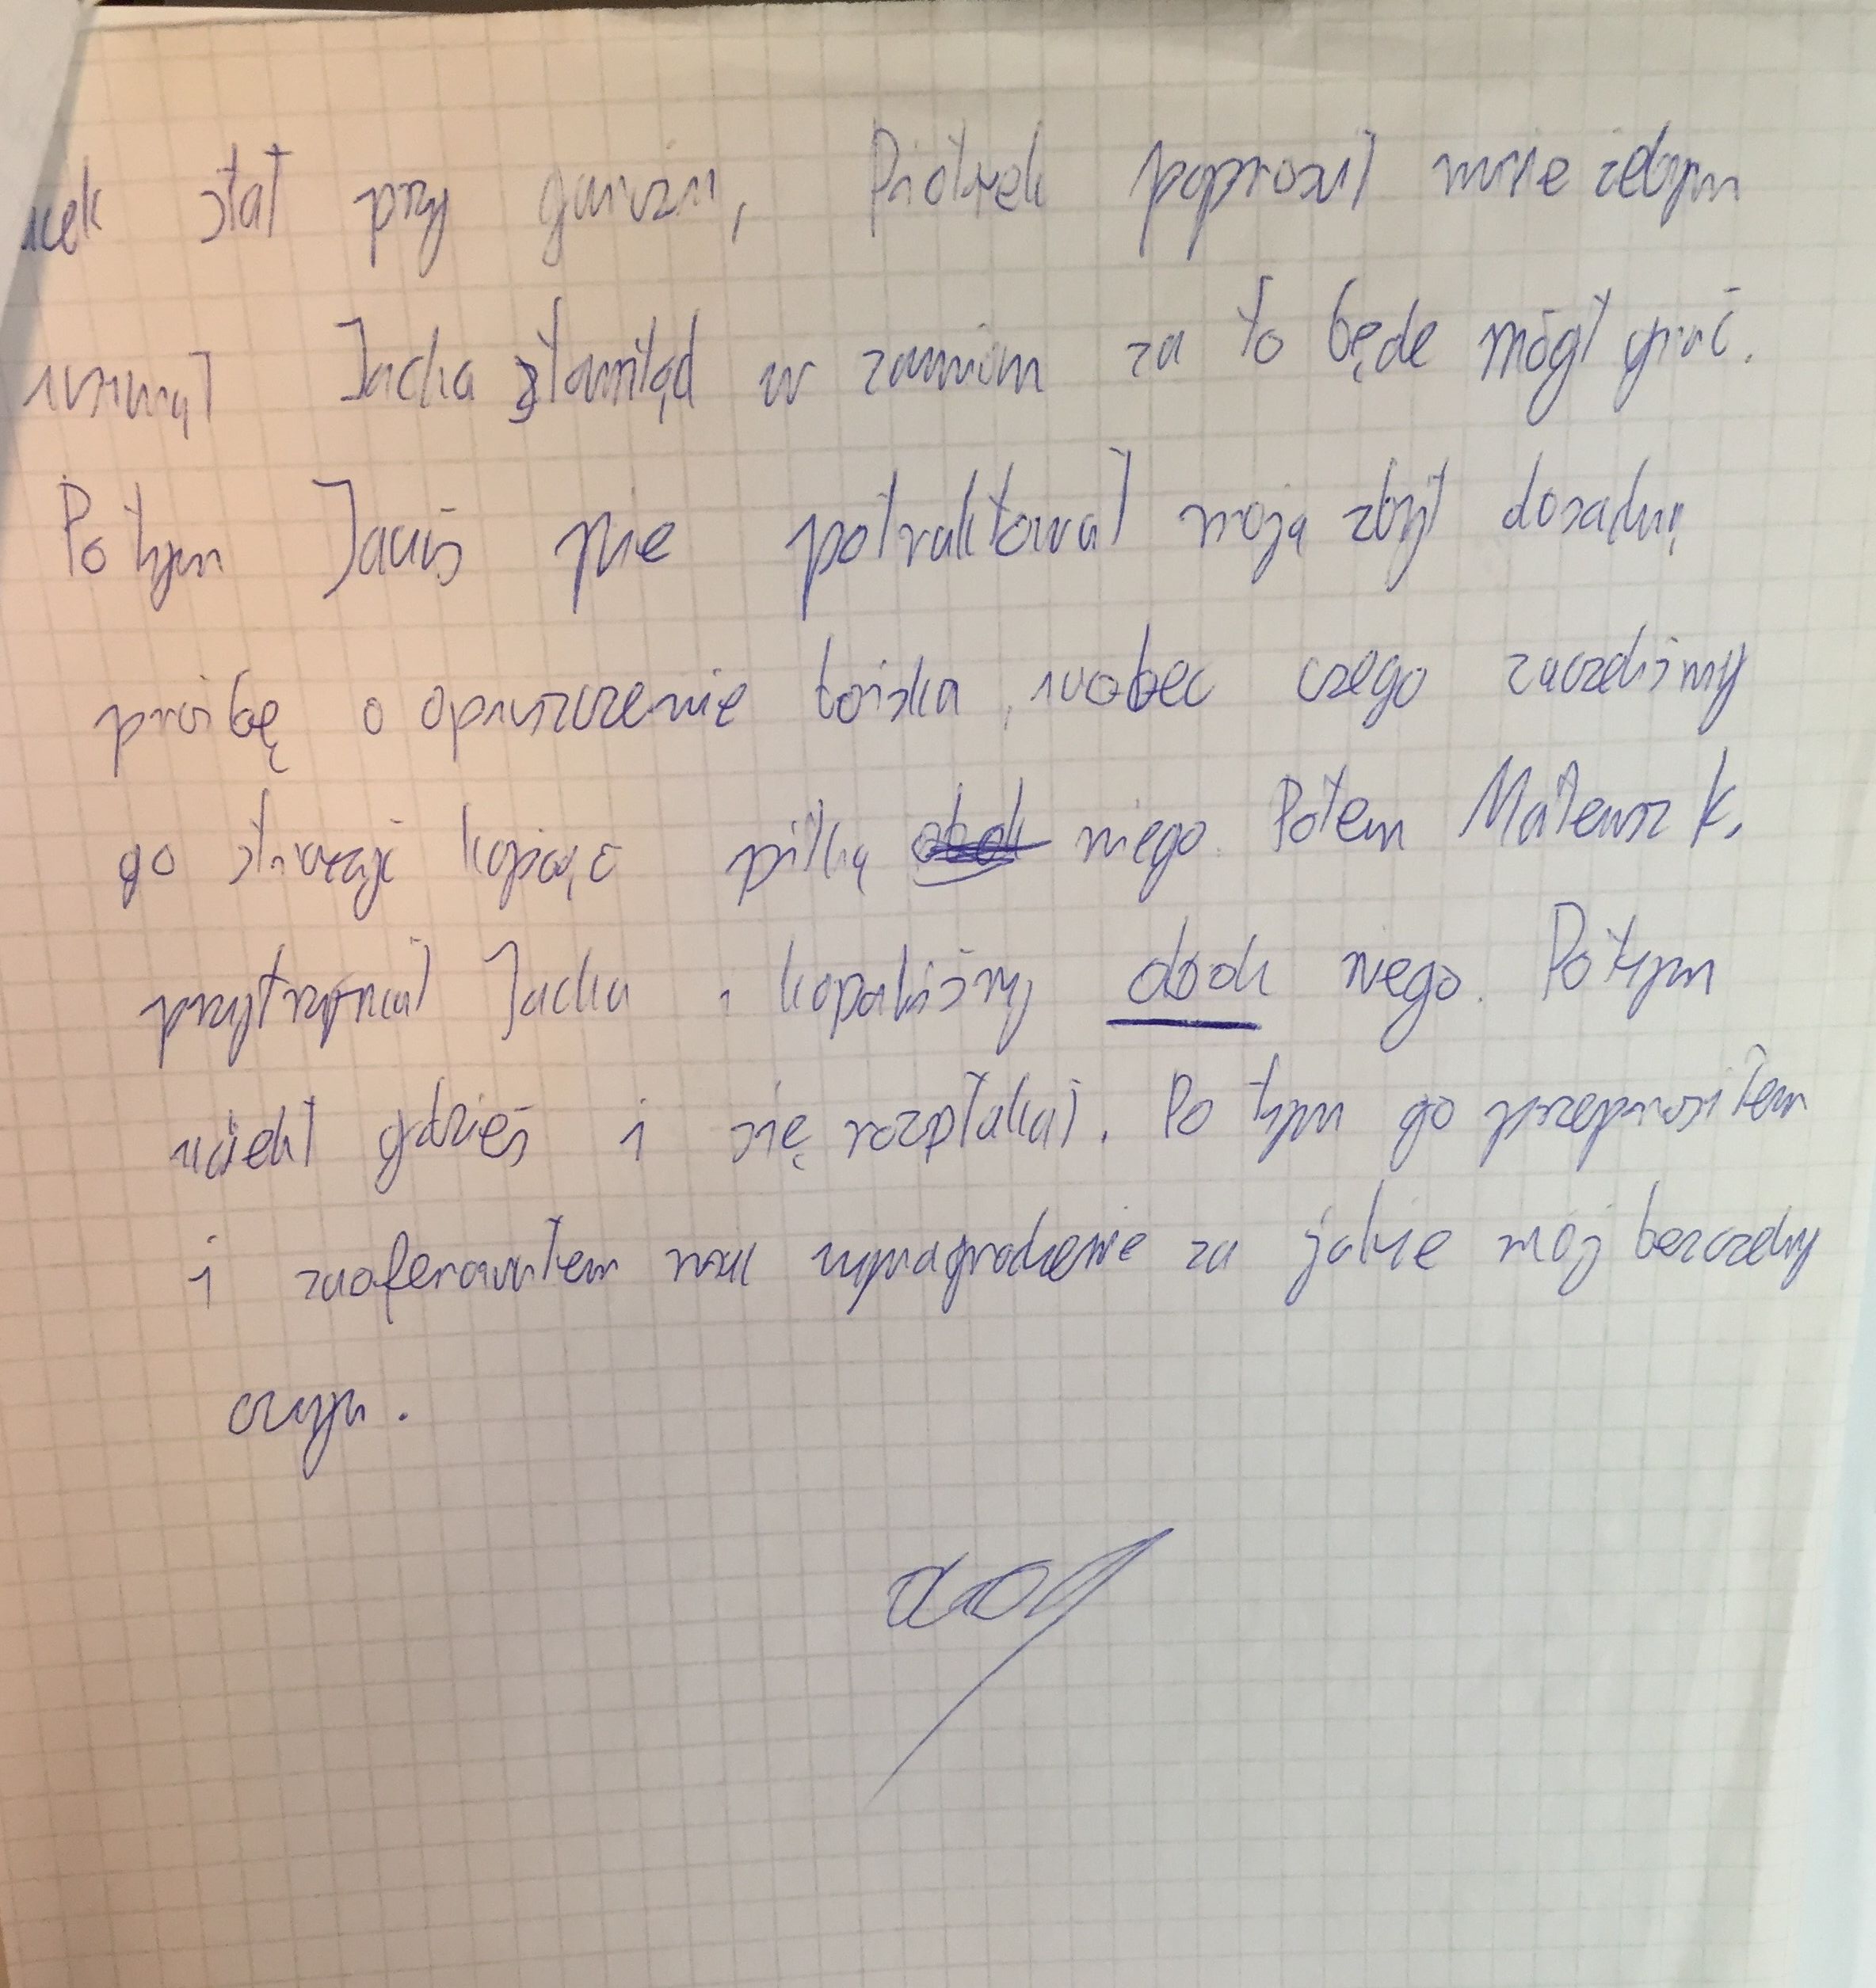 acek stał przy                 Piotrek poprosił mnie żebym
usunął Jacka stamtąd w zamian za to będe mógł grać.
Po tym Jacuś nie potraktował moją zbyt dosadną
prośbę o opuszczenie boiska, wobec czego zaczeliśmy
go straszyć kopiąc piłką obok niego. Potem Mateusz K.
przytrzymał Jacka i kopaliśmy obok niego. Po tym
uciekł gdzieś i się rozpłakał. Po tym go przeprosiłem
i zaoferowałem mu wynagrodzenie za jakże mój bezczelny
czyn.